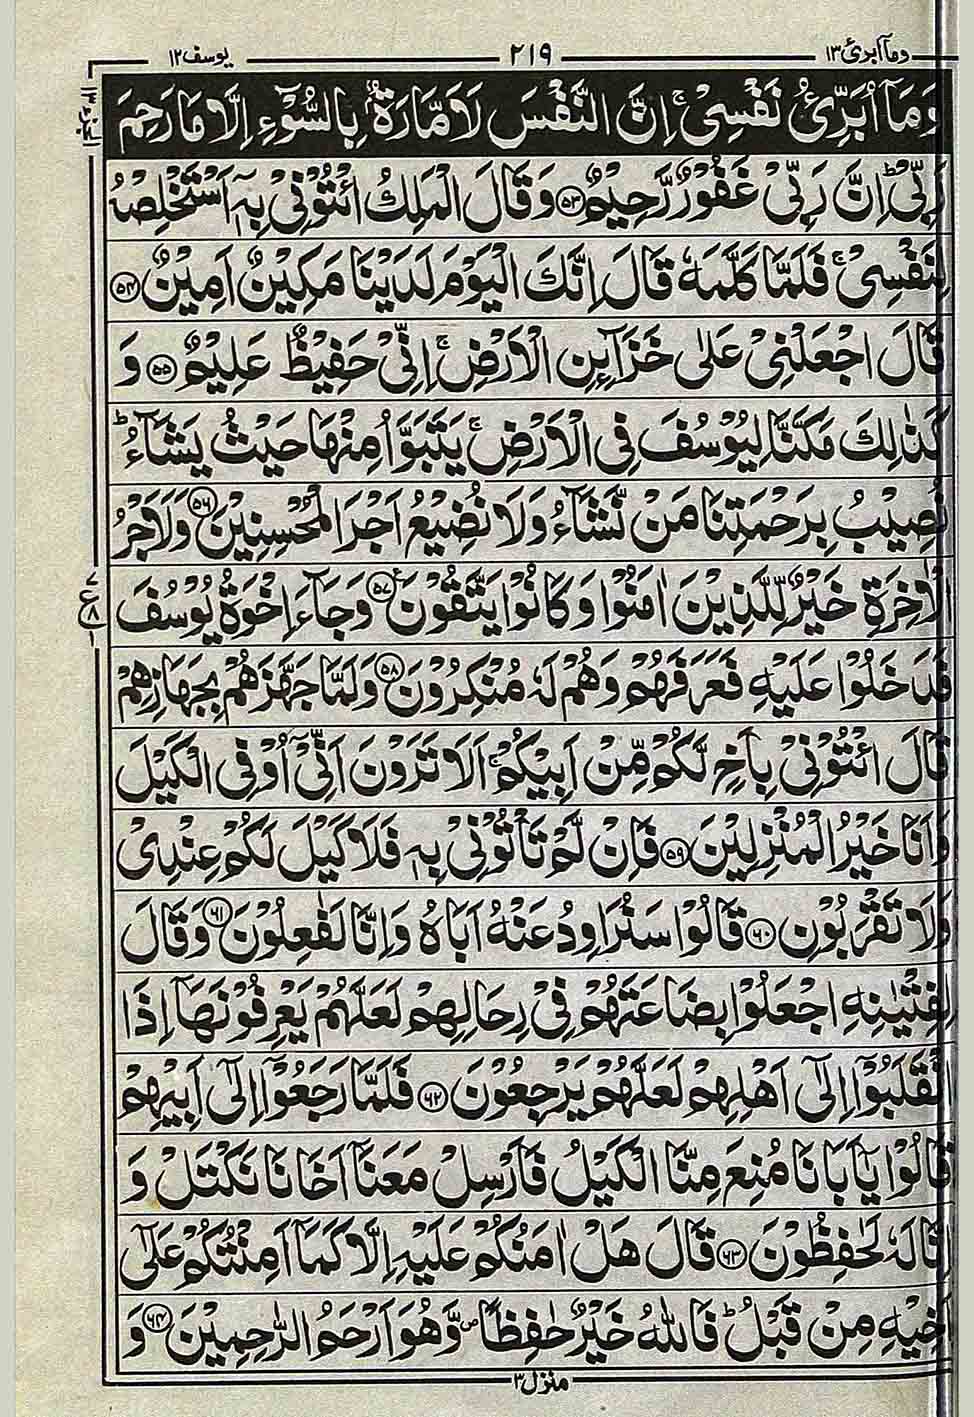 وماآ ابرئ ١٣ ٢١٩ يوسف ١٢
وَمَاۤ اُبَرِّئُ نَفْسِیْ ۚ اِنَّ النَّفْسَ لَاَمَّارَةٌۢ بِالسُّوْٓءِ اِلَّا مَا رَحِمَ
رَبِّیْ ؕ اِنَّ رَبِّیْ غَفُوْرٌ رَّحِیْمٌ ﴿۵۳﴾ وَ قَالَ الْمَلِكُ ائْتُوْنِیْ بِهٖۤ اَسْتَخْلِصْهُ
لِنَفْسِیْ ۚ فَلَمَّا كَلَّمَهٗ قَالَ اِنَّكَ الْیَوْمَ لَدَیْنَا مَكِیْنٌ اَمِیْنٌ ﴿۵۴﴾
قَالَ اجْعَلْنِیْ عَلٰی خَزَآىِٕنِ الْاَرْضِ ۚ اِنِّیْ حَفِیْظٌ عَلِیْمٌ ﴿۵۵﴾ وَ
كَذٰلِكَ مَكَّنَّا لِیُوْسُفَ فِی الْاَرْضِ ۚ یَتَبَوَّاُ مِنْهَا حَیْثُ یَشَآءُ ؕ
نُصِیْبُ بِرَحْمَتِنَا مَنْ نَّشَآءُ وَ لَا نُضِیْعُ اَجْرَ الْمُحْسِنِیْنَ ﴿۵۶﴾ وَ لَاَجْرُ
الْاٰخِرَةِ خَیْرٌ لِّلَّذِیْنَ اٰمَنُوْا وَ كَانُوْا یَتَّقُوْنَ ﴿۵۷﴾ وَ جَآءَ اِخْوَةُ یُوْسُفَ
فَدَخَلُوْا عَلَیْهِ فَعَرَفَهُمْ وَ هُمْ لَهٗ مُنْكِرُوْنَ ﴿۵۸﴾ وَ لَمَّا جَهَّزَهُمْ بِجَهَازِهِمْ
قَالَ ائْتُوْنِیْ بِاَخٍ لَّكُمْ مِّنْ اَبِیْكُمْ ۚ اَلَا تَرَوْنَ اَنِّیْۤ اُوْفِی الْكَیْلَ
وَ اَنَا خَیْرُ الْمُنْزِلِیْنَ ﴿۵۹﴾ فَاِنْ لَّمْ تَاْتُوْنِیْ بِهٖ فَلَا كَیْلَ لَكُمْ عِنْدِیْ
وَ لَا تَقْرَبُوْنِ ﴿۶۰﴾ قَالُوْا سَنُرَاوِدُ عَنْهُ اَبَاهُ وَ اِنَّا لَفٰعِلُوْنَ ﴿۶۱﴾ وَ قَالَ
لِفِتْیٰنِهِ اجْعَلُوْا بِضَاعَتَهُمْ فِیْ رِحَالِهِمْ لَعَلَّهُمْ یَعْرِفُوْنَهَاۤ اِذَا
انْقَلَبُوْۤا اِلٰۤی اَهْلِهِمْ لَعَلَّهُمْ یَرْجِعُوْنَ ﴿۶۲﴾ فَلَمَّا رَجَعُوْۤا اِلٰۤی اَبِیْهِمْ
قَالُوْا یٰۤاَبَانَا مُنِعَ مِنَّا الْكَیْلُ فَاَرْسِلْ مَعَنَاۤ اَخَانَا نَكْتَلْ وَ
اِنَّا لَهٗ لَحٰفِظُوْنَ ﴿۶۳﴾ قَالَ هَلْ اٰمَنُكُمْ عَلَیْهِ اِلَّا كَمَاۤ اَمِنْتُكُمْ عَلٰۤی
اَخِیْهِ مِنْ قَبْلُ ؕ فَاللّٰهُ خَیْرٌ حٰفِظًا ۪ وَّ هُوَ اَرْحَمُ الرّٰحِمِیْنَ ﴿۶۴﴾ وَ
منزل ٣